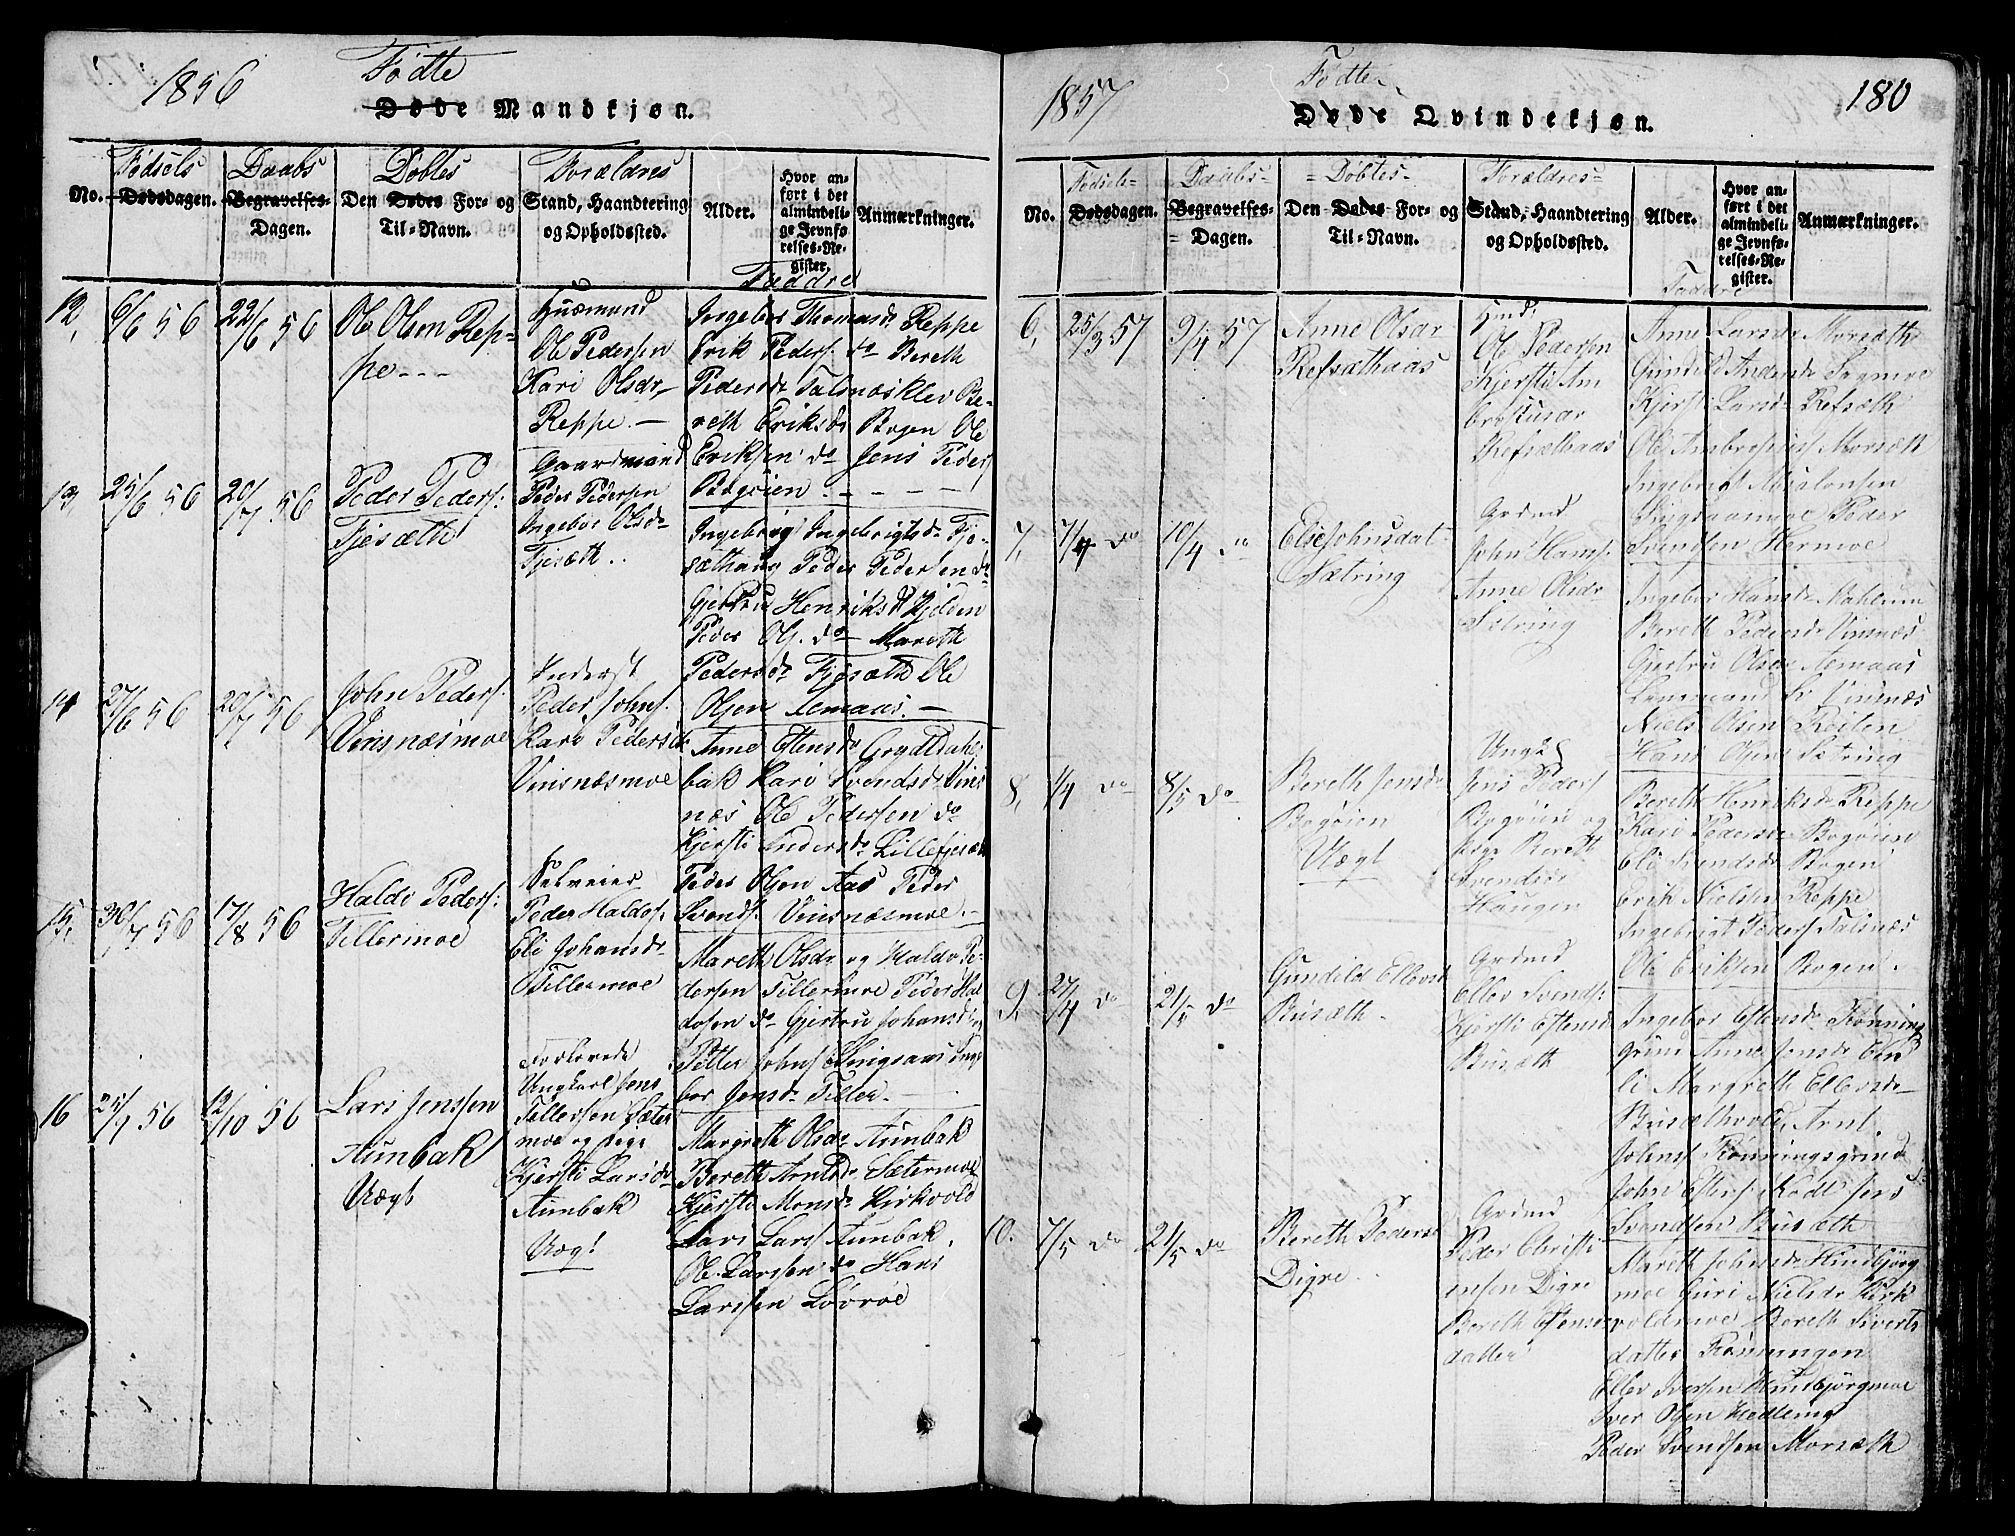 1856
Födte
Døde Mandkjøn.
No.
Fødsels
Dødsdagen.
Daabs
Begravelses-
Dagen.
Döbtes
Den Dødes For- og
Til-Navn.
Forældres
Stand, Haandtering
og Opholdssted.
Alder.
Hvor an-
ført i det
almindeli-
ge Jevnfø-
relses-Re-
gister.
Anmærkninger.
Faddre
12, 6/6 56 22/6 56
Ole Olsen Rep-
pe - - -
Huusmand
Ole Pedersen
Kari Olsdr
Reppe. -
Ingebor Thomasd. Reppe
Erik Peders. do Bereth
Pedersdr Falsnæsklev Be-
reth Eriksdr Bogen Ole
Eriksen do Jens Peders
Bogöien - - - -
13, 25/6 56 20/7 56
Peder Peders:
Fjesæth
Gaardmand
Peder Pedersen
Ingebor Olsdr
Fjesæth..
Ingebrig Ingebrigtsdr Fje-
sæthaug Peder Pedersen do
Gjertru Henriksdr Kjelden
Peder Ols. do Mareth
Pedersdr Fjesæth Ole
Olsen Aemaas. -
14 27/6 56 20/7 56
John Peders.
Vinsnæsmoe
Inderst
Peder Johns.
Kari Pedersdr
Vinsnæsmoe
Anne Estensdr Grydtdahl
bak Kari Svendsdr Vins
næs Ole Pedersen do
Kjersti Andersdr Lillefjesæth
Peder Olsen Aas Peder
Svends. Vinsnæsmoe. -
15, 30/7 56 17/8 56
Haldo Peders:
Tillermoe
Selveier
Peder Haldos.
Eli Johansdr
Tillermoe
Mareth Olsdr og Haldo Pe-
dersen Tillermoe Peder Hal
dosen do Gjertru Johansdr
Petter Johns Engsaas Inge
bor Jensdr Tiller. -
16 25/9 56 12/10 56
Lars Jenssen
Aunbak
Uægt
Forlovede
Ungkarl Jens
Tillersen Sæter
moe og Pige
Kjersti Larsdr
Aunbak
Uægt
Margreth Olsdr Aunbak
Bereth Arntsdr Sætermoe
Kjersti Monsdr Kirkvold
Lars Lars Aunbak,
Ole Larssen do Hans
Larssen Lövroe
1857
Födte
Døde Qvindekjøn.
180
No.
Fødsels-
Dødsdagen.
Daabs-
Begravelses-
Dagen.
Döbtes
Den Dødes For- og
Til-Navn.
Forældres
Stand, Haandtering
og Opholdssted.
Alder.
Hvor an-
ført i det
almindeli-
ge Jevnfø-
relses-Re-
gister.
Anmærkninger.
Faddre
6, 25/3 57 9/4 57
Anne Olsdr
Refsæthaas
Hmd:
Ole Pedersen
Kjersti Am
brosiusdr
Refsæthaas
Anne Larsdr Morsæth
Gunild Andersdr Sagmoe
Kjersti Larsdr Refsæth
Ole Ambrosius Morsæth
Ingebrigt Absalonsen
Singsaasmoe Peder
Svendsen Hermoe
7, 7/4 do 10/4 do
Else Johnsdat
Sætring
Grdmd
John Hans.
Anne Olsdr
Sætring
Ingebor Hansdr Mahlum
Bereth Pedersdr Vinsnæs
Gjertru Olsdr Aemaas
Lensmand Vinsnæs
Niels Olsen Reiten
Hans Olsen Sætring
8, 1/4 do 8/5 do
Bereth Jensdr
Bogöien
Uægt
Ungk
Jens Peders
Bogöien og
Pige Bereth
Svendsdr
Haugen
Bereth Henriksdr Reppe
Kari Pedersdr Bogöien
Eli Svendsdr Bogen
Erik Nielsen Reppe
Ingebrigt Peders Falsnæs
Ole Eriksen Bogen.
9, 27/4 do 21/5 do
Gunild Ellevsd
Busæth.
Grdmd
Ellev Svends:
Kjersti Estensdr
Busæth
Ingebor Estensdr Rönnings
grind Anne Jensdr Een
li Margreth Ellevsdr
Busæthvold, Arnt.
Johns Rönningsgrind
John Estens. Kodt Jens
Svendsen Busæth
10. 7/5 do 21/5 do
Bereth Pedersd
Digre
Grdmd
Peder Christi
ansen Digre
Bereth Estens
datter
Mareth Johnsdr Hindbjörg
moe Guri Nielsdr Kirk
voldmoe Bereth Siverts
datter Rönningen
Ellev Iversen Hindbjörgmoe
Iver Olsen Kedling
Peder Svendsen Morsæth